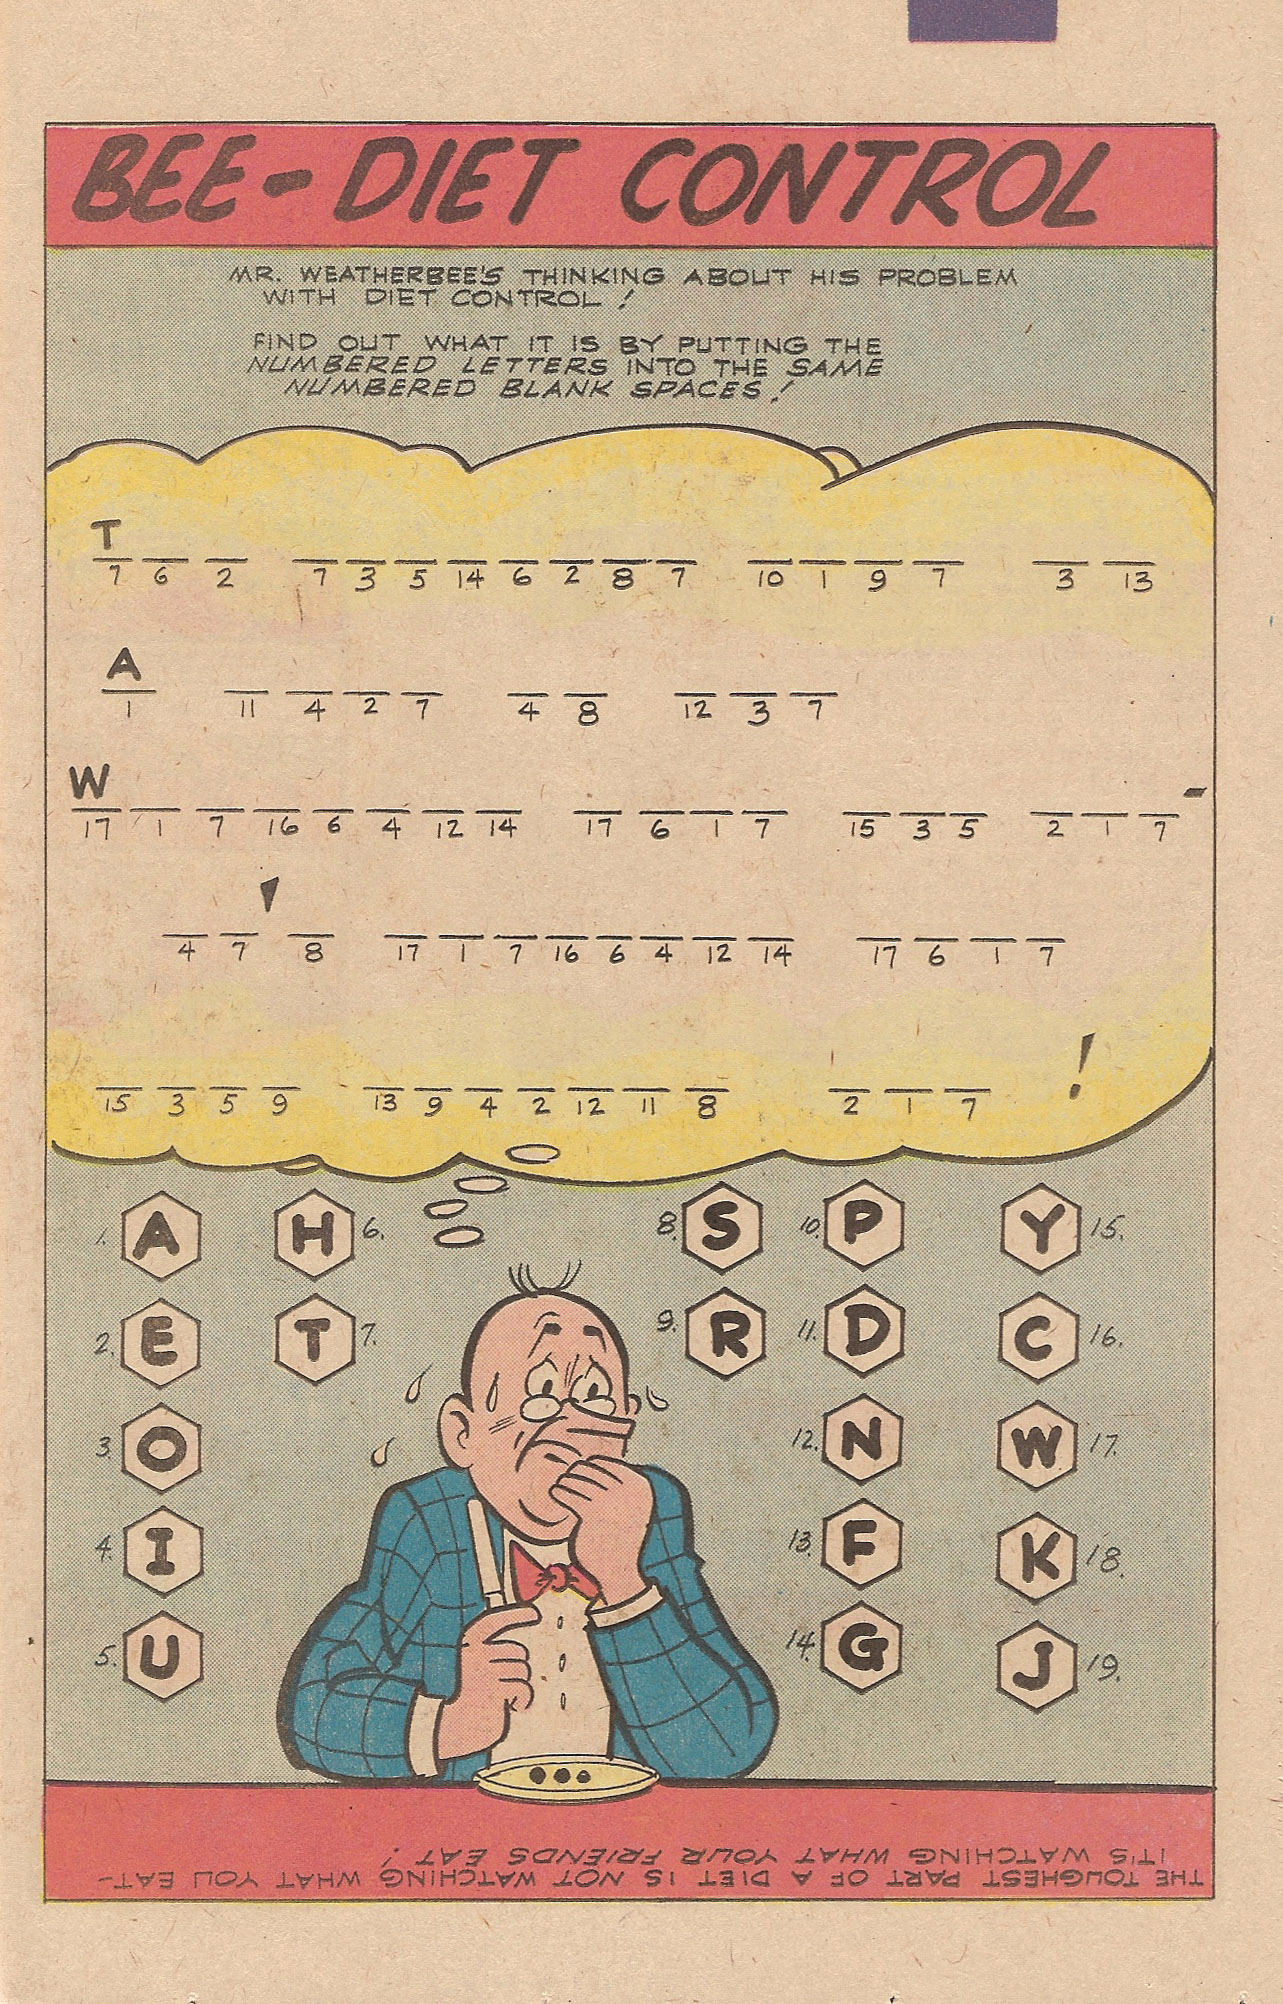 BEE-DIET CONTROL
MR. WEATHERBEE'S THINKING ABOUT HIS PROBLEM
WITH DIET CONTROL!
FIND OUT WHAT IT IS BY PUTTING THE
NUMBERED LETTERS INTO THE SAME
NUMBERED BLANK SPACES!
T
7 6 2 7 3 5 14 6 2 8 7 10 1 9 7 3 13
A
1 11 4 2 7 4 8 12 3 7
W -
17 1 7 16 6 4 12 14 17 6 1 7 15 3 5 2 1 7
'
4 7 8 17 1 7 16 6 4 12 14 17 6 1 7
!
15 3 5 9 13 9 4 2 12 11 8 2 1 7
1. A H 6. 8. S 10. P Y 15.
2. E T 7. 9. R 11. D C 16.
3. O 12. N W 17.
4. I 13. F K 18.
5. U 14. G J 19.
THE TOUGHEST PART OF A DIET IS NOT WATCHING WHAT YOU EAT-
IT'S WATCHING WHAT YOUR FRIENDS EAT!